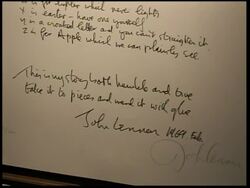 is for        which never lights
X is easter – have one yourself
Y is a crooked letter and you can't straighten it
Z is for Apple which we can plainly see
This is my story both humble and true
take it to pieces and mend it with glue
John Lennon 1969 Feb
John Lennon